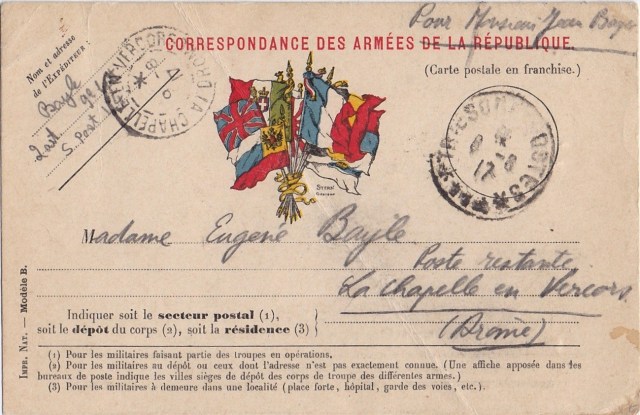 Pour Monsieur Jean Bayle
CORRESPONDANCE DES ARMÉES DE LA RÉPUBLIQUE.
(Carte postale en franchise.)
Nom et adresse
de l'EXPÉDITEUR :
Bayle
S. Post
LA CHAPELLE-EN-VERCORS
TRESOR ET POSTES
Madame Eugène Bayle
Poste restante
La Chapelle en Vercors
(Drome)
Indiquer soit le secteur postal (1),
soit le dépôt du corps (2), soit la résidence (3)
IMPR. NAT. — Modèle B.
(1) Pour les militaires faisant partie des troupes en opérations.
(2) Pour les militaires au dépôt ou ceux dont l'adresse n'est pas exactement connue. (Une affiche apposée dans les
bureaux de poste indique les villes sièges de dépôt des corps de troupe des différentes armes.)
(3) Pour les militaires à demeure dans une localité (place forte, hôpital, garde des voies, etc.).